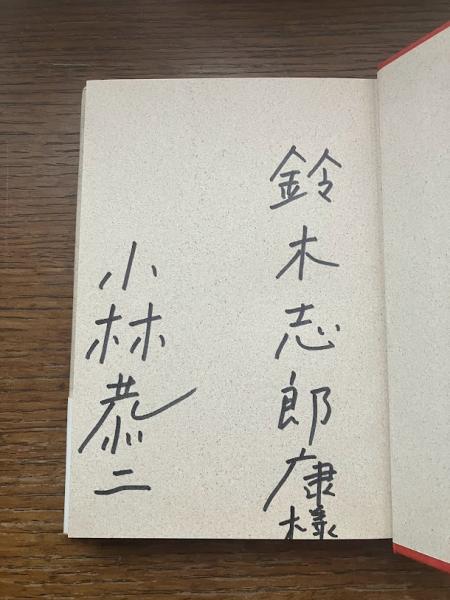 鈴木志郎康様
小林恭二